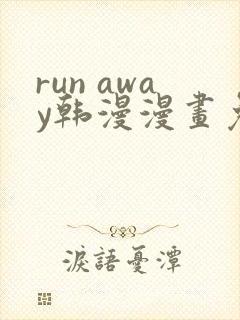 run awa
y韩漫漫畫
淚語憂潭